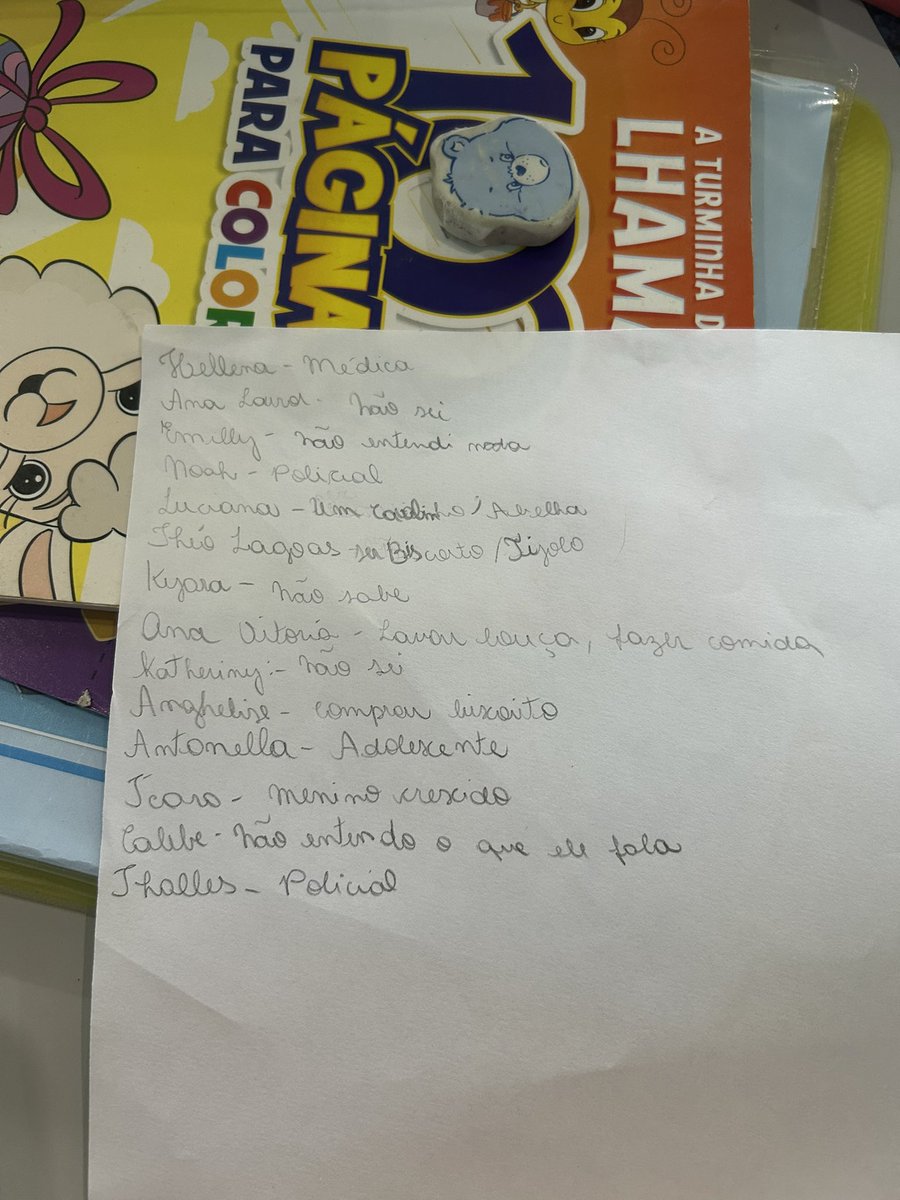 A TURMINHA D
LHAMA
10
PÁGINA
PARA COLOR
Hellena - Médica
Ana Laura - não sei
Emilly - não entendi nada
Noah - Policial
Luciana - Um coelinho / Abelha
Théo Lagoas - ser Biscoito / Tijolo
Kyara - não sabe
Ana Vitória - Lavar louça, fazer comida
Katheriny: - não sei
Anghelise - comprar biscoito
Antonella - Adolescente
Ícaro - menino crescido
Calebe - não entendo o que ele fala
Thalles - Policial